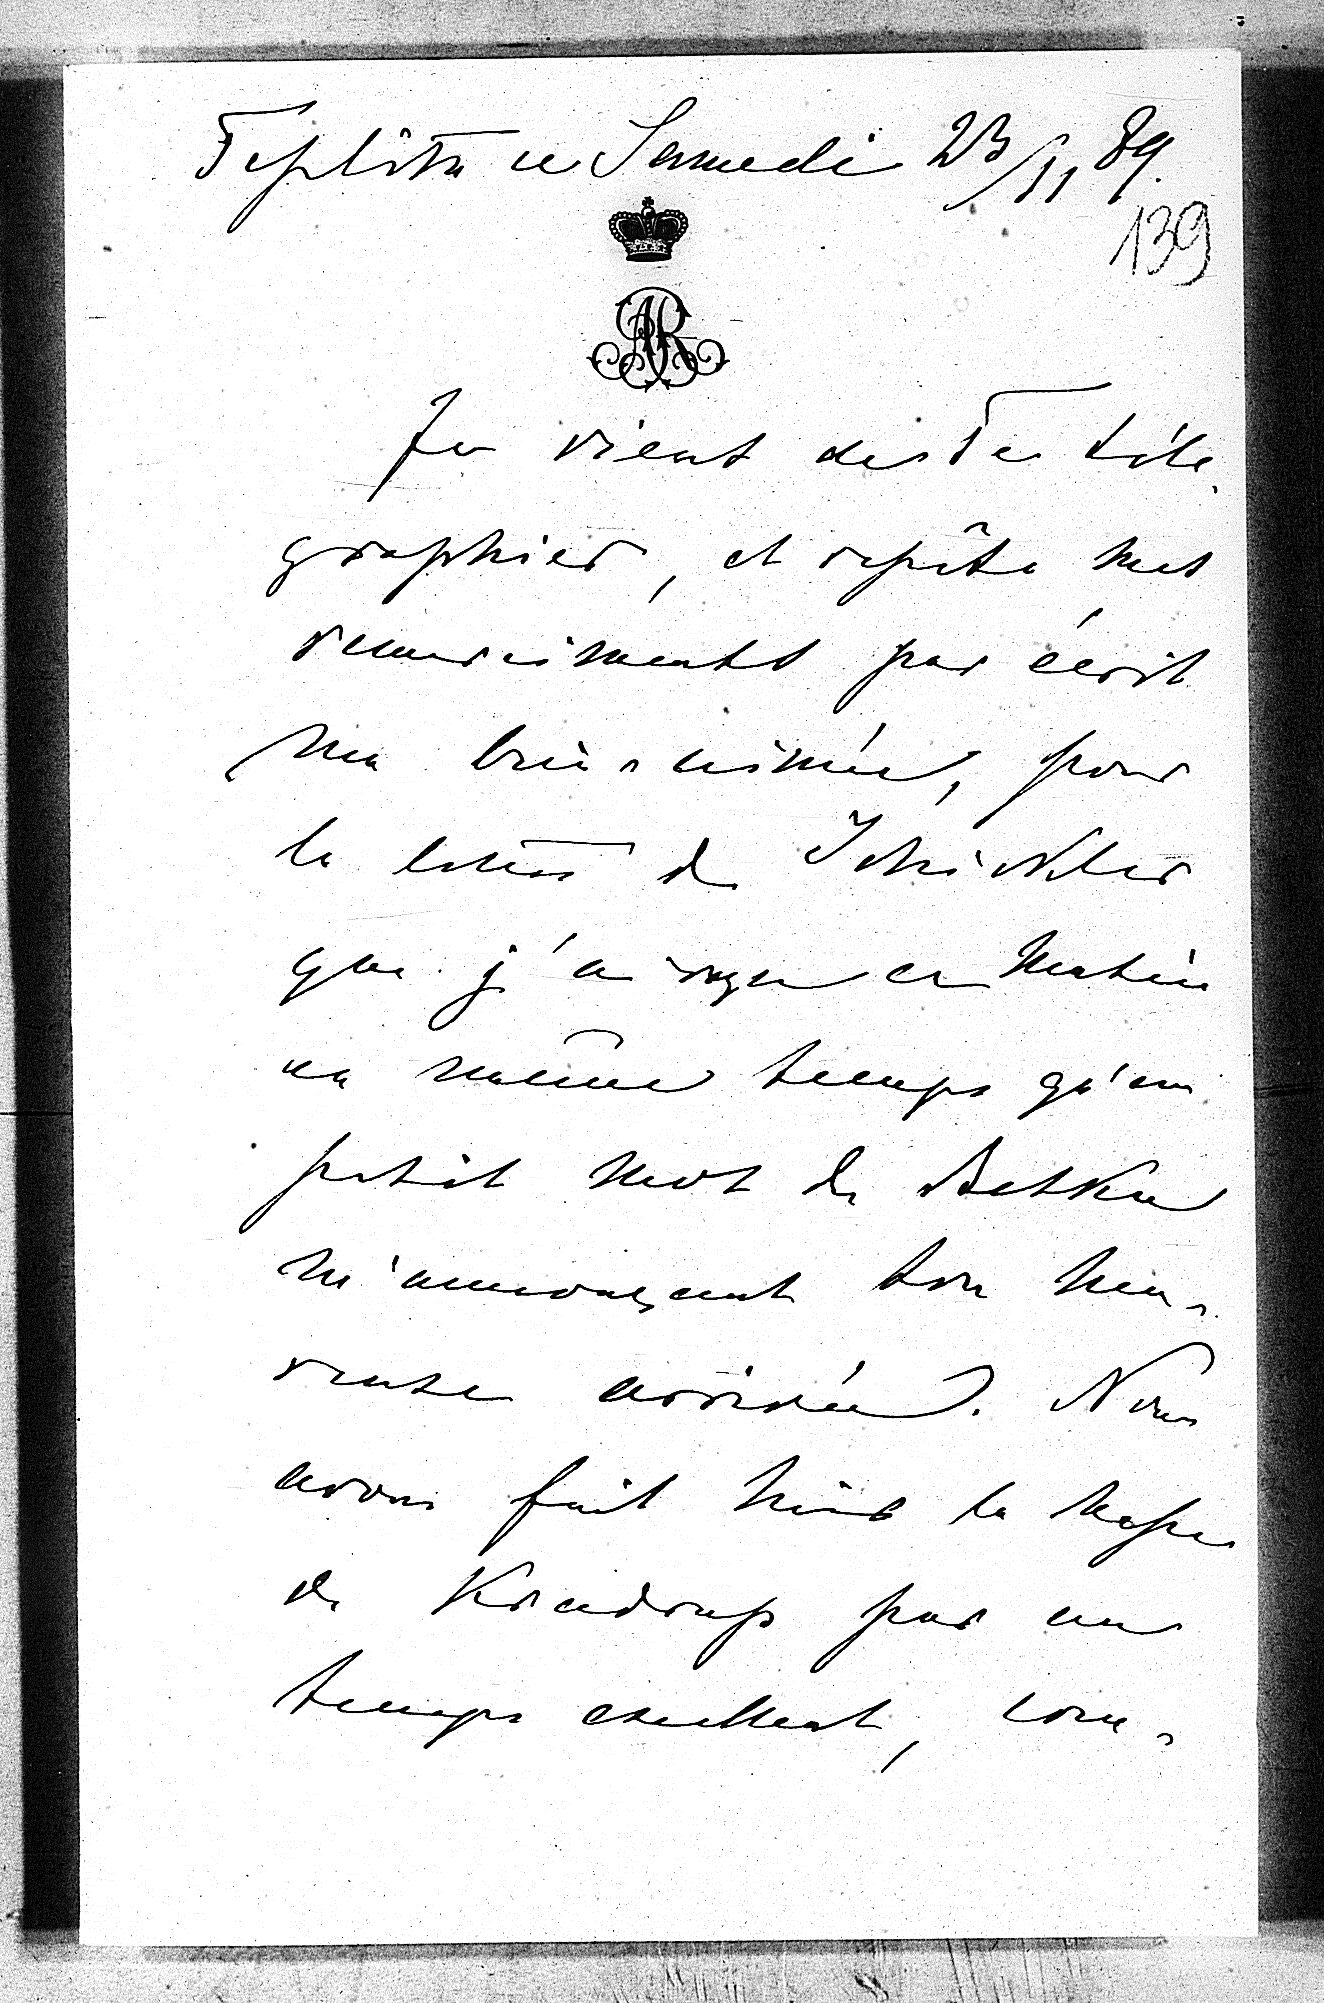 Teplitz ce Samedi 23/11 89.
139
AR
Je vient de Te télé-
graphier, et repète mes
remerciments par écrit
ma bien-aimée, pour
la lettre de Schickler
que j'ai reçu ce matin
en même temps qu'un
petit mot de Betka
m'annonçant ton heu-
reuse arrivée. Nous
avons fait hier la
de Kradrup par un
temps exellent, com-